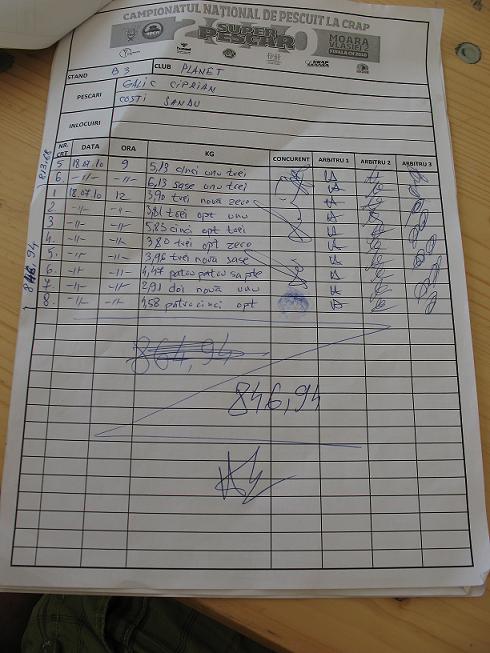 CAMPIONATUL NATIONAL DE PESCUIT LA CRAP
SUPER PESCAR
MOARA VLASIEI
STAND B3 CLUB PLANET
PESCARI GALIC CIPRIAN
COSTI SANDU
INLOCUIRI
NR. CRT DATA ORA KG CONCURENT ARBITRU 1 ARBITRU 2 ARBITRU 3
5 18.07.10 9 5,13 cinci unu trei
6. -//- -//- 6,13 sase unu trei
1 18.07.10 12 3,90 trei nouă zero
2 -//- -//- 3,81 trei opt unu
3 -//- -//- 5,83 cinci opt trei
4. -//- -//- 3,80 trei opt zero
5. -//- -//- 3,96 trei nouă sase
6. -//- -//- 4,47 patru patru sapte
7. -//- -//- 2,91 doi nouă unu
8. -//- -//- 4,58 patru cinci opt
864,94
846,94
813.88
846,94